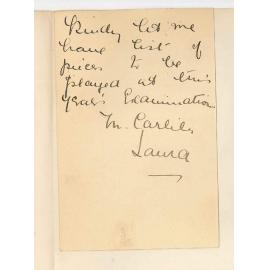 Kindly let me
have list of
pieces to be
played at this
year's Examination
M. Carlile
Laura